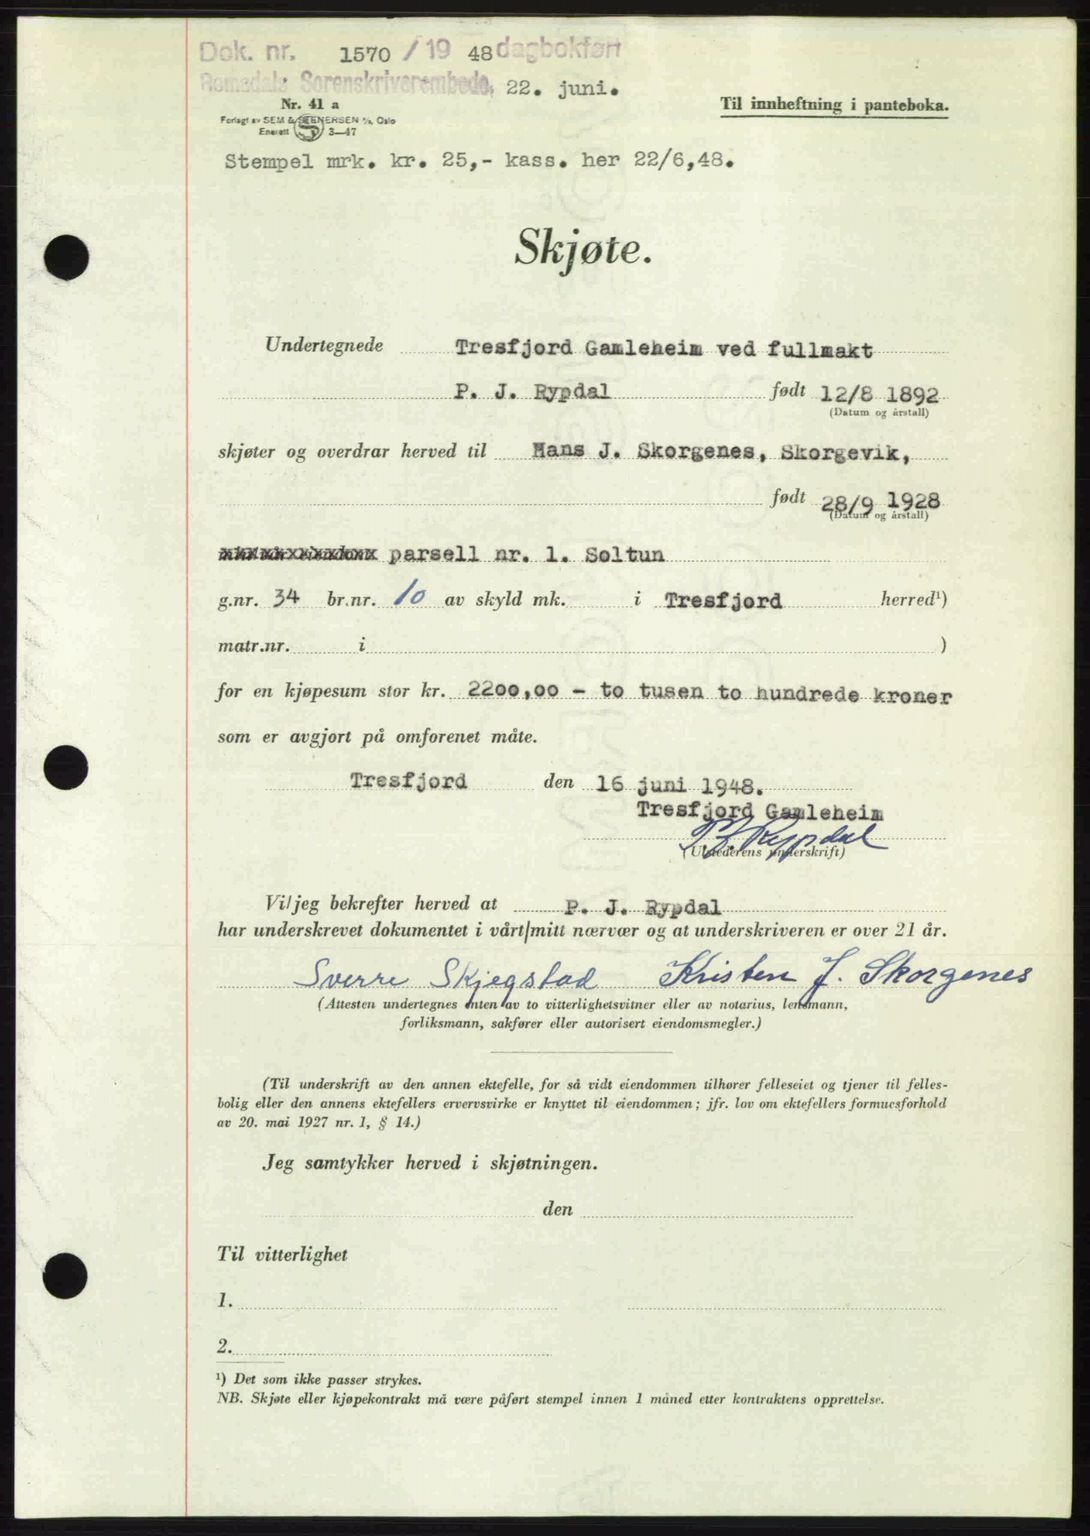 Dok. nr. 1570 / 19 48 dagbokført
Romsdals Sorenskriverembede, 22. juni.
Nr. 41 a
Til innheftning i panteboka.
Forlagt av SEM & STENERSEN A/S, Oslo
Enerett 3—47
Stempel mrk. kr. 25,- kass. her 22/6,48.
Skjøte.
Undertegnede Tresfjord Gamleheim ved fullmakt
P. J. Rypdal født 12/8 1892
(Datum og årstall)
skjøter og overdrar herved til Hans J. Skorgenes, Skorgevik,
født 28/9 1928
(Datum og årstall)
parsell nr. 1. Soltun
g.nr. 34 br.nr. 10 av skyld mk. i Tresfjord herred¹)
matr.nr. i )
for en kjøpesum stor kr. 2200,00 - to tusen to hundrede kroner
som er avgjort på omforenet måte.
Tresfjord den 16 juni 1948.
Tresfjord Gamleheim
P. J. Rypdal
(Utstederens underskrift)
Vi/jeg bekrefter herved at P. J. Rypdal
har underskrevet dokumentet i vårt/mitt nærvær og at underskriveren er over 21 år.
Sverre Skjegstad Kristen J. Skorgenes
(Attesten undertegnes enten av to vitterlighetsvitner eller av notarius, lensmann,
forliksmann, sakfører eller autorisert eiendomsmegler.)
(Til underskrift av den annen ektefelle, for så vidt eiendommen tilhører felleseiet og tjener til felles-
bolig eller den annens ektefellers ervervsvirke er knyttet til eiendommen; jfr. lov om ektefellers formuesforhold
av 20. mai 1927 nr. 1, § 14.)
Jeg samtykker herved i skjøtningen.
den
Til vitterlighet
1.
2.
¹) Det som ikke passer strykes.
NB. Skjøte eller kjøpekontrakt må være påført stempel innen 1 måned etter kontraktens opprettelse.